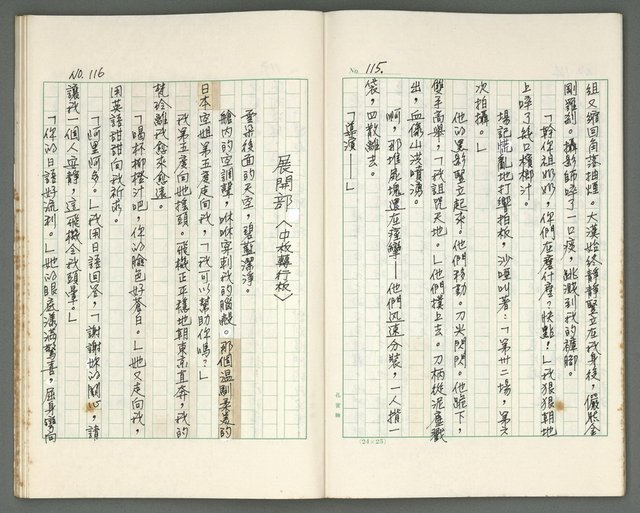 No 115.
組又縮回角落抽煙。大漢始終靜靜豎立在我身後,儼然金
剛羅剎。攝影師啐了一口痰,跳濺到我的褲腳。
「幹你祖奶奶,你們在磨什麼?快點!」我狠狠朝地
上啐了好口檳榔汁。
場記慌亂地打響拍板,沙嗄叫著:「第卅二場,第六
次拍攝。」
他的黑影豎立起來。他們移動。刀尖閃閃。他跪下,
雙手高舉,「我詛咒天地。」他們撲上去。刀柄從泥屋戳
出,血像山洪噴湧。
啊,那堆屍塊還在痙攣——他們迅速分裝,一人揹一
袋,四散離去。
「導演——」
(24×25)
No. 116
展開部〈中板轉行板〉
雲層後面的天空,碧藍潔淨。
艙內的空調聲,咻咻穿刺我的腦殼。那個溫馴柔美的
日本空姐第五度走向我,「我可以幫助你嗎?」
我第五度向她搖頭。飛機正平穩地朝東京直奔,我的
梵玲離我愈來愈遠。
「喝杯柳橙汁吧,你的臉色好蒼白。」她又走向我,
用英語甜甜向我祈求。
「阿里阿多。」我用日語回答,「謝謝妳的關心,請
讓我一個人安靜,這飛機令我頭暈。」
「你的日語好流利。」她的眼底漾滿驚喜,屈身彎向